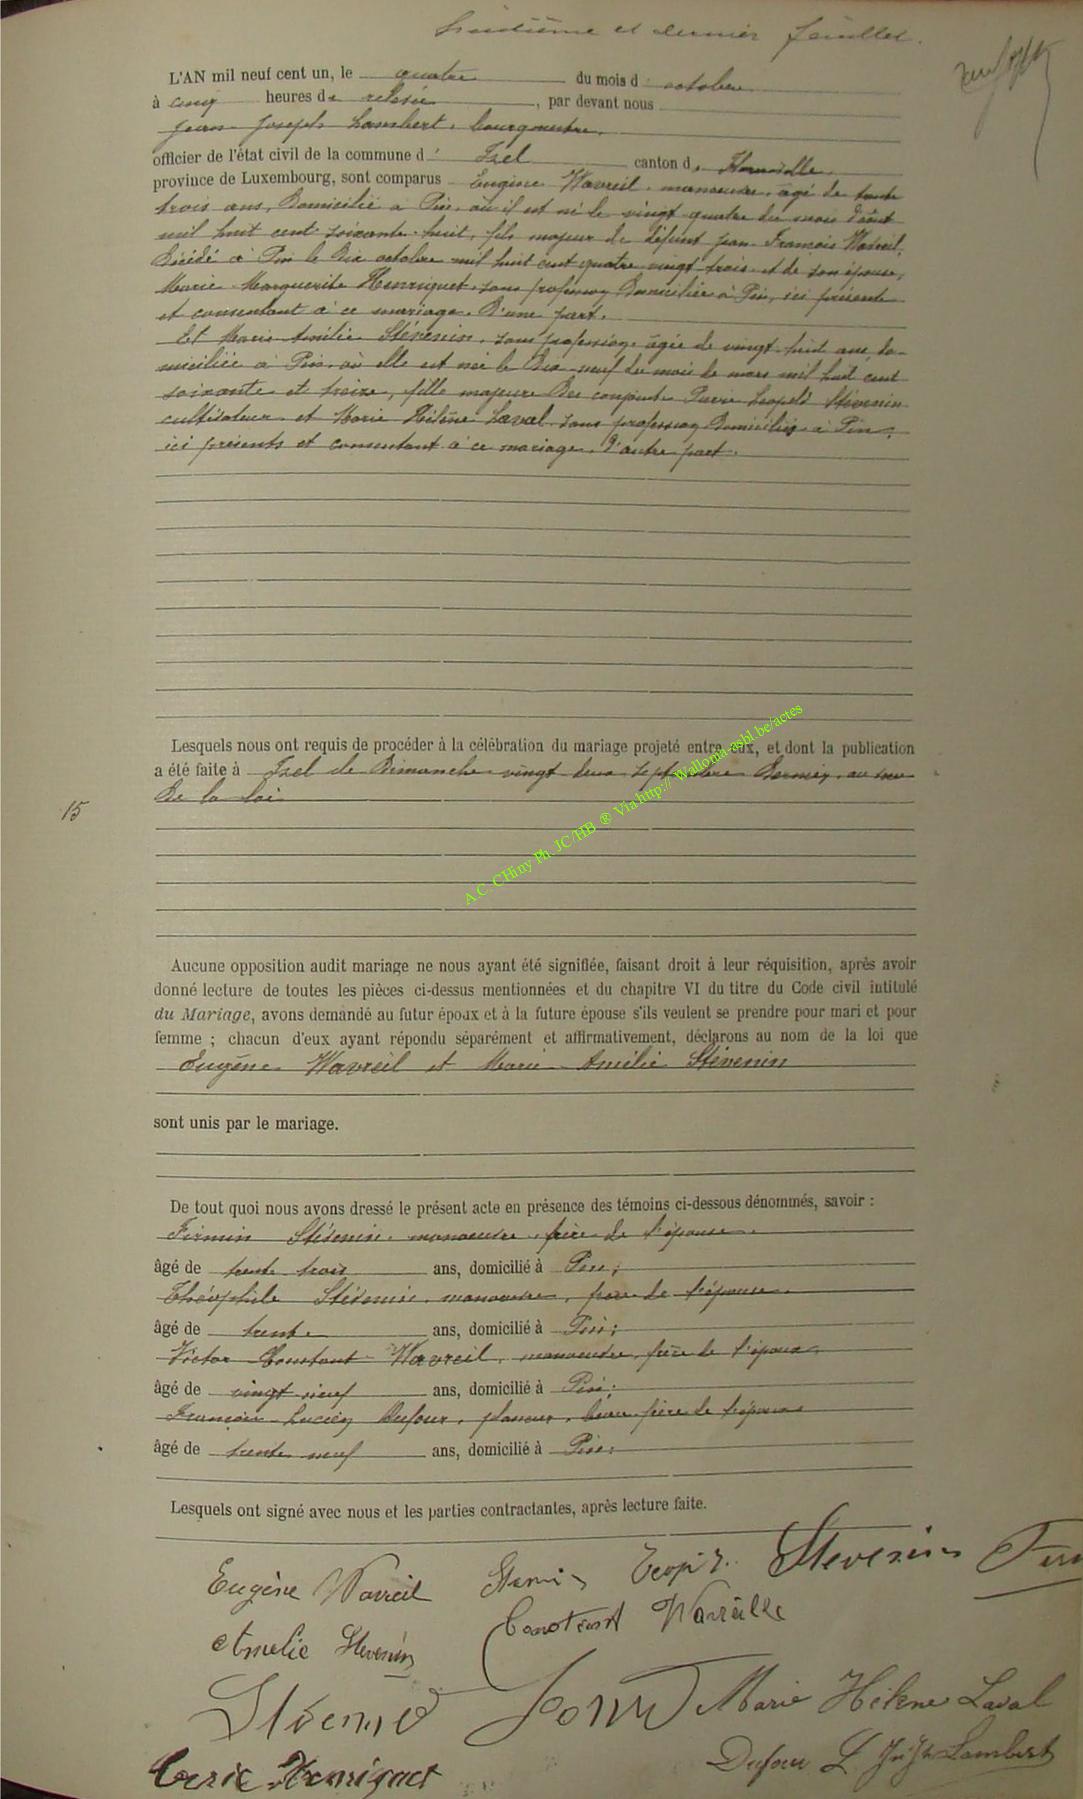 huitième et dernier feuillet.
L'AN mil neuf cent un, le quatre du mois d octobre
à cinq heures de relevée, par devant nous
Jean Joseph Lambert, bourgmestre,
officier de l'état civil de la commune d' Izel canton de Florenville,
province de Luxembourg, sont comparus Eugène Wavreil, manoeuvre, âgé de trente
trois ans, Domicilié à Pin, où il est né le vingt quatre du mois d'août
mil huit cent soixante huit, fils majeur de défunt Jean François Wavreil,
Décédé à Pin le dix octobre mil huit cent quatre vingt trois et de son épouse,
Marie Marguerite Henriquet, sans profession Domiciliée à Pin, ici présente
et consentant à ce mariage. D'une part.
Et Marie Amélie Stévenin, sans profession, âgée de vingt huit ans do-
miciliée à Pin, où elle est née le Dix neuf du mois de mars mil huit cent
soixante et treize, fille majeure des conjoints Pierre Leopold Stévenin
cultivateur et Marie Hélène Laval sans profession Domiciliés à Pin,
ici présents et consentant à ce mariage. D'autre part.
Lesquels nous ont requis de procéder à la célébration du mariage projeté entre eux, et dont la publication
a été faite à Izel le Dimanche vingt deux septembre Dernier, au vœu
De la loi
15
A.C. CHiny Ph. JC/HB ® Via http:// Wallonia-asbl.be/actes
Aucune opposition audit mariage ne nous ayant été signifiée, faisant droit à leur réquisition, après avoir
donné lecture de toutes les pièces ci-dessus mentionnées et du chapitre VI du titre du Code civil intitulé
du Mariage, avons demandé au futur époux et à la future épouse s'ils veulent se prendre pour mari et pour
femme ; chacun d'eux ayant répondu séparément et affirmativement, déclarons au nom de la loi que
Eugène Wavreil et Marie Amélie Stévenin
sont unis par le mariage.
De tout quoi nous avons dressé le présent acte en présence des témoins ci-dessous dénommés, savoir :
Firmin Stévenin, manoeuvre, frère de l'épouse.
âgé de trente trois ans, domicilié à Pin;
Théophile Stévenin, manoeuvre, frère de l'épouse.
âgé de trente ans, domicilié à Pin;
Victor Constant Wavreil, manoeuvre, frère de l'époux,
âgé de vingt neuf ans, domicilié à Pin;
François Lucien Dufour, beau frère de l'époux
âgé de trente neuf ans, domicilié à Pin;
Lesquels ont signé avec nous et les parties contractantes, après lecture faite.
Eugène Wavreil Stevenin
Constant Wavreille
Amelie Stevenin
Marie Hélène Laval
Dufour L. Lambert
Marie Henriquet